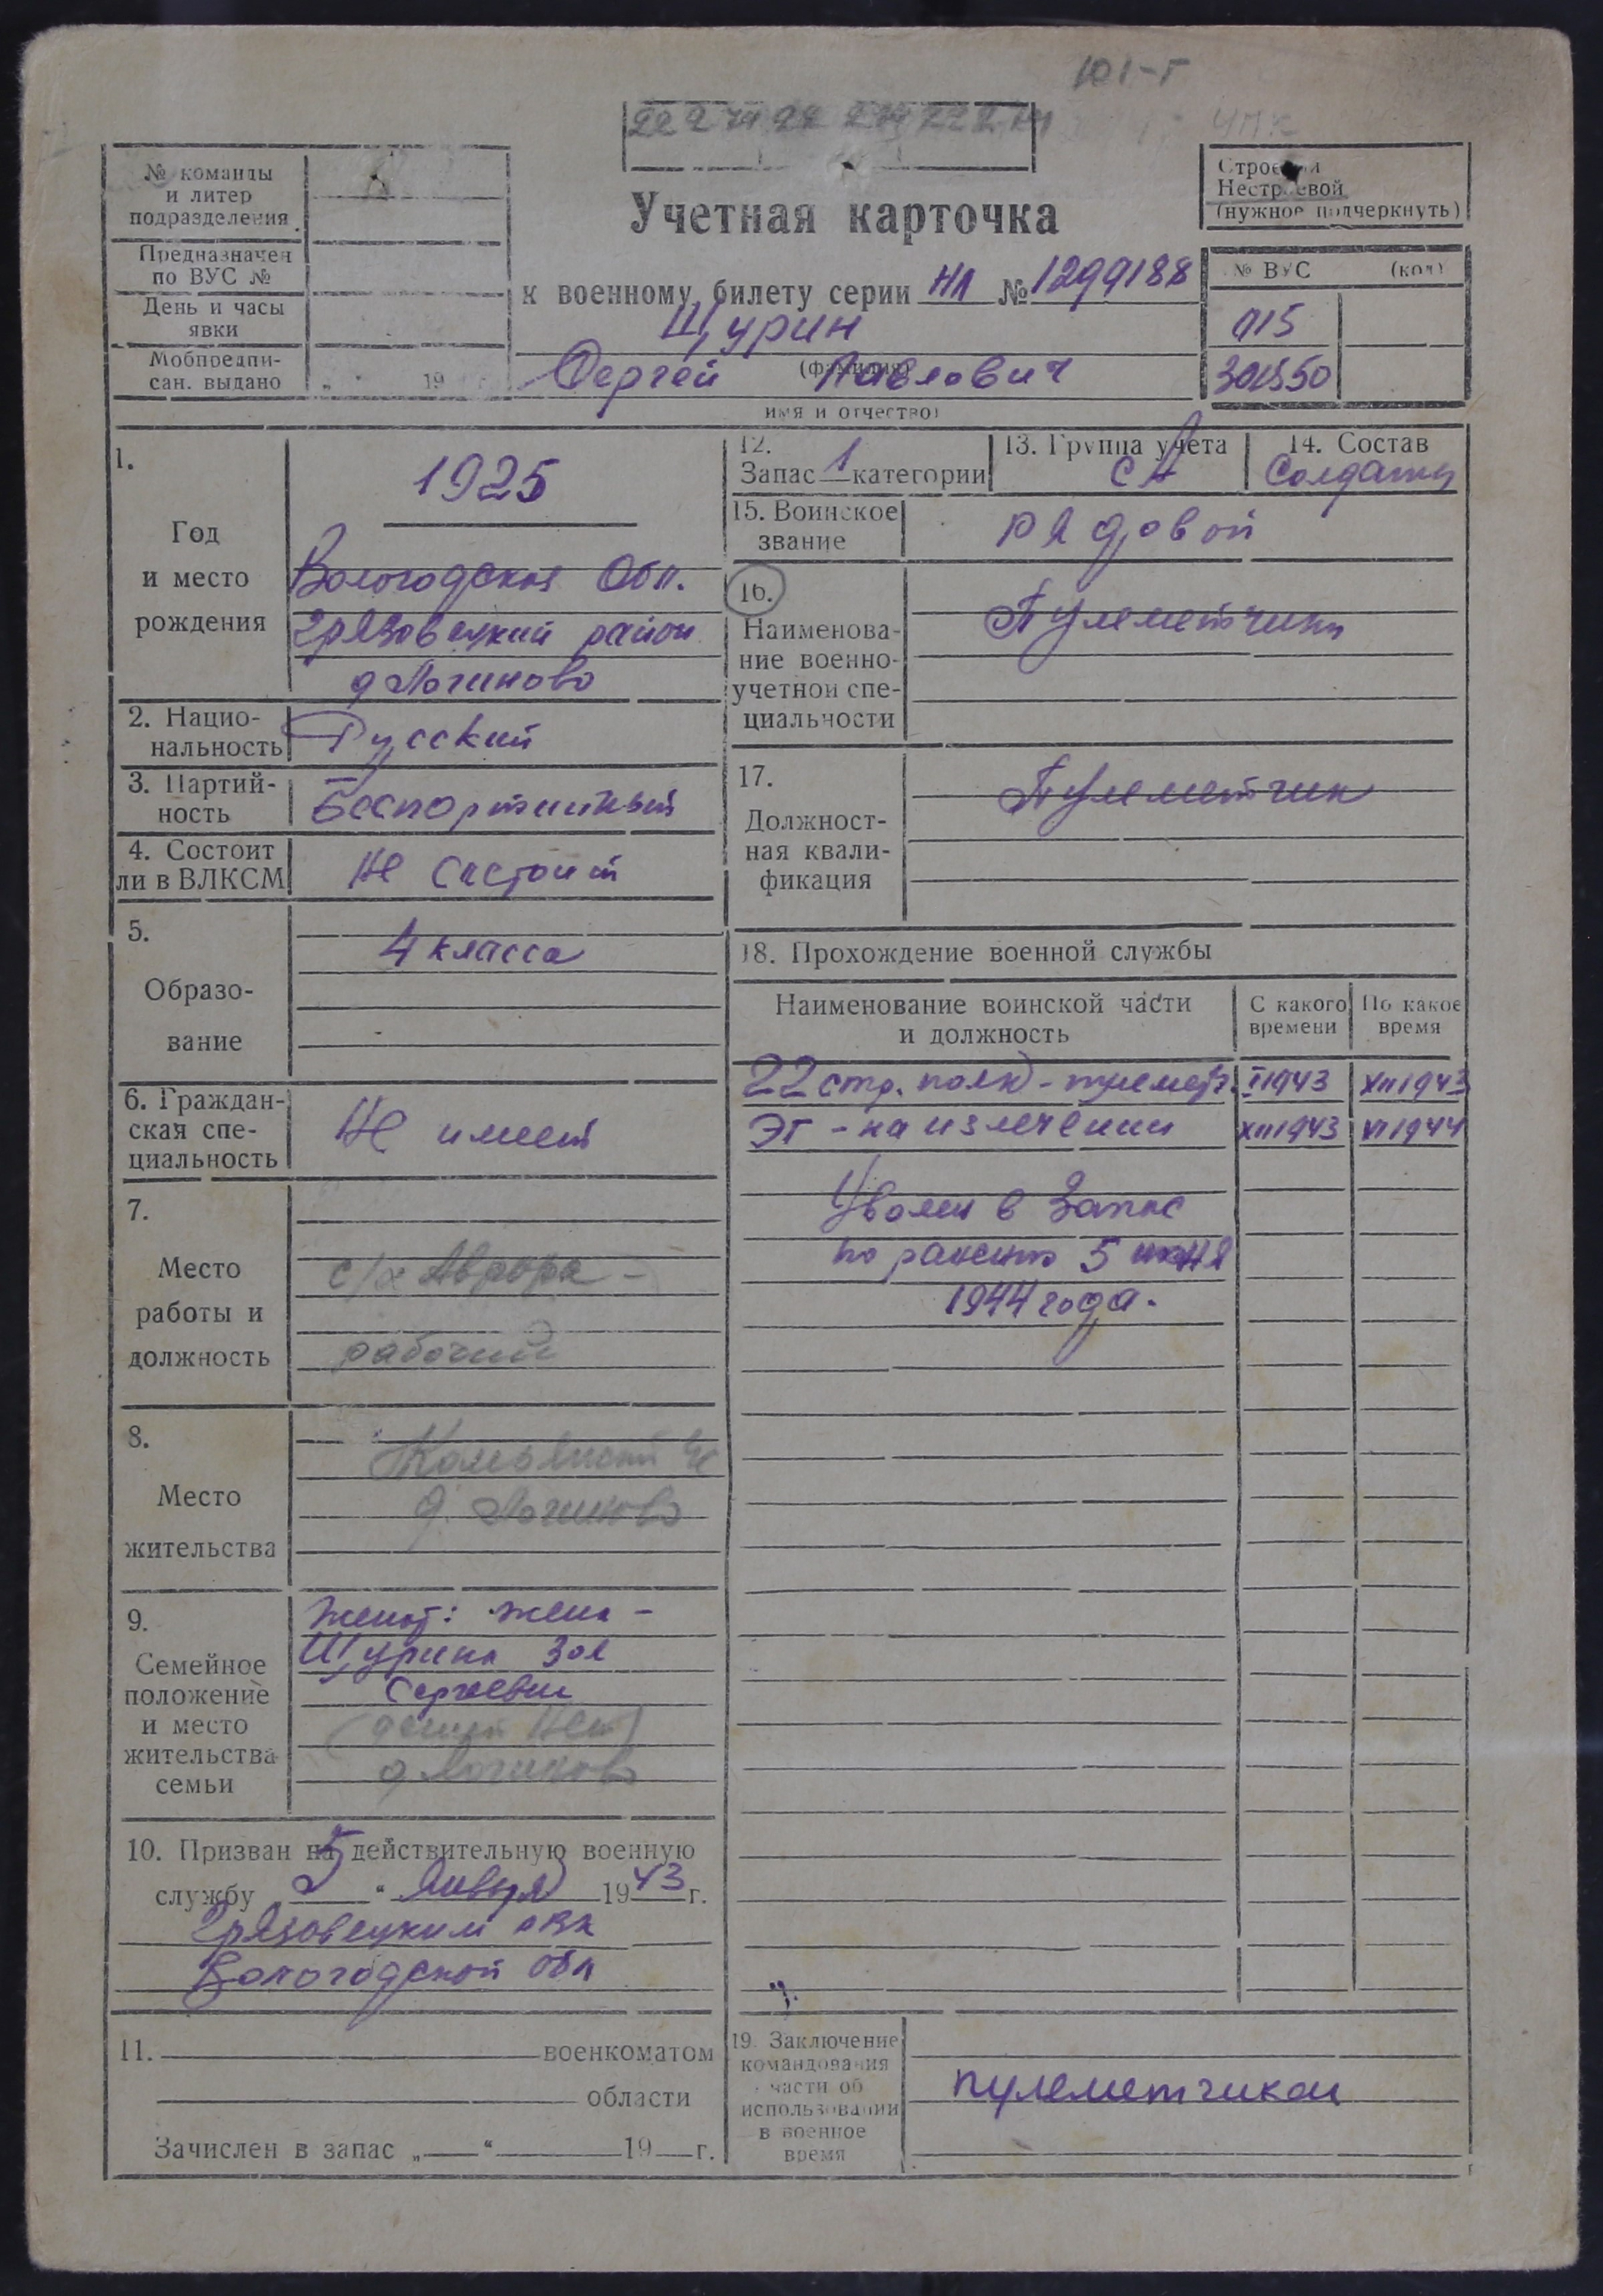 101-Г
№ команды
и литер
подразделения
Предназначен
по ВУС №
День и часы
явки
Мобпредпи-
сан. выдано „ " 19 г.
Учетная карточка
к военному билету серии НЛ № 1299188
Щурин
(фамилия)
Сергей Павлович
имя и отчество)
Строевой
Нестроевой
(нужное подчеркнуть)
№ ВУС (код)
015
301550
1.
Год
и место
рождения
1925
Вологодская Обл.
Грязовецкий район
д Логиново
2. Нацио-
нальность
Русский
3. Партий-
ность
Беспартийный
4. Состоит
ли в ВЛКСМ
Не состоит
5.
Образо-
вание
4 класса
6. Граждан-
ская спе-
циальность
Не имеет
7.
Место
работы и
должность
с/х Аврора -
рабочий
8.
Место
жительства
д. Логиново
9.
Семейное
положение
и место
жительства
семьи
Женат: жена -
Щурина Зоя
Сергеевна
(детей нет)
д Логиново
10. Призван на действительную военную
службу „5" Января 1943 г.
Грязовецким РВК
Вологодской обл
11. военкоматом
области
Зачислен в запас „ " 19 г.
12.
Запас 1 категории
13. Группа учета
СА
14. Состав
Солдаты
15. Воинское
звание
рядовой
16.
Наименова-
ние военно-
учетной спе-
циальности
Пулеметчики
17.
Должност-
ная квали-
фикация
Пулеметчик
18. Прохождение военной службы
Наименование воинской части
и должность
С какого
времени
По какое
время
22 стр. полк - пулеметч. I 1943 XII 1943
ЭГ - на излечении XII 1943 VI 1944
Уволен в запас
по ранению 5 июня
1944 года.
19. Заключение
командования
части об
использовании
в военное
время
пулеметчиком